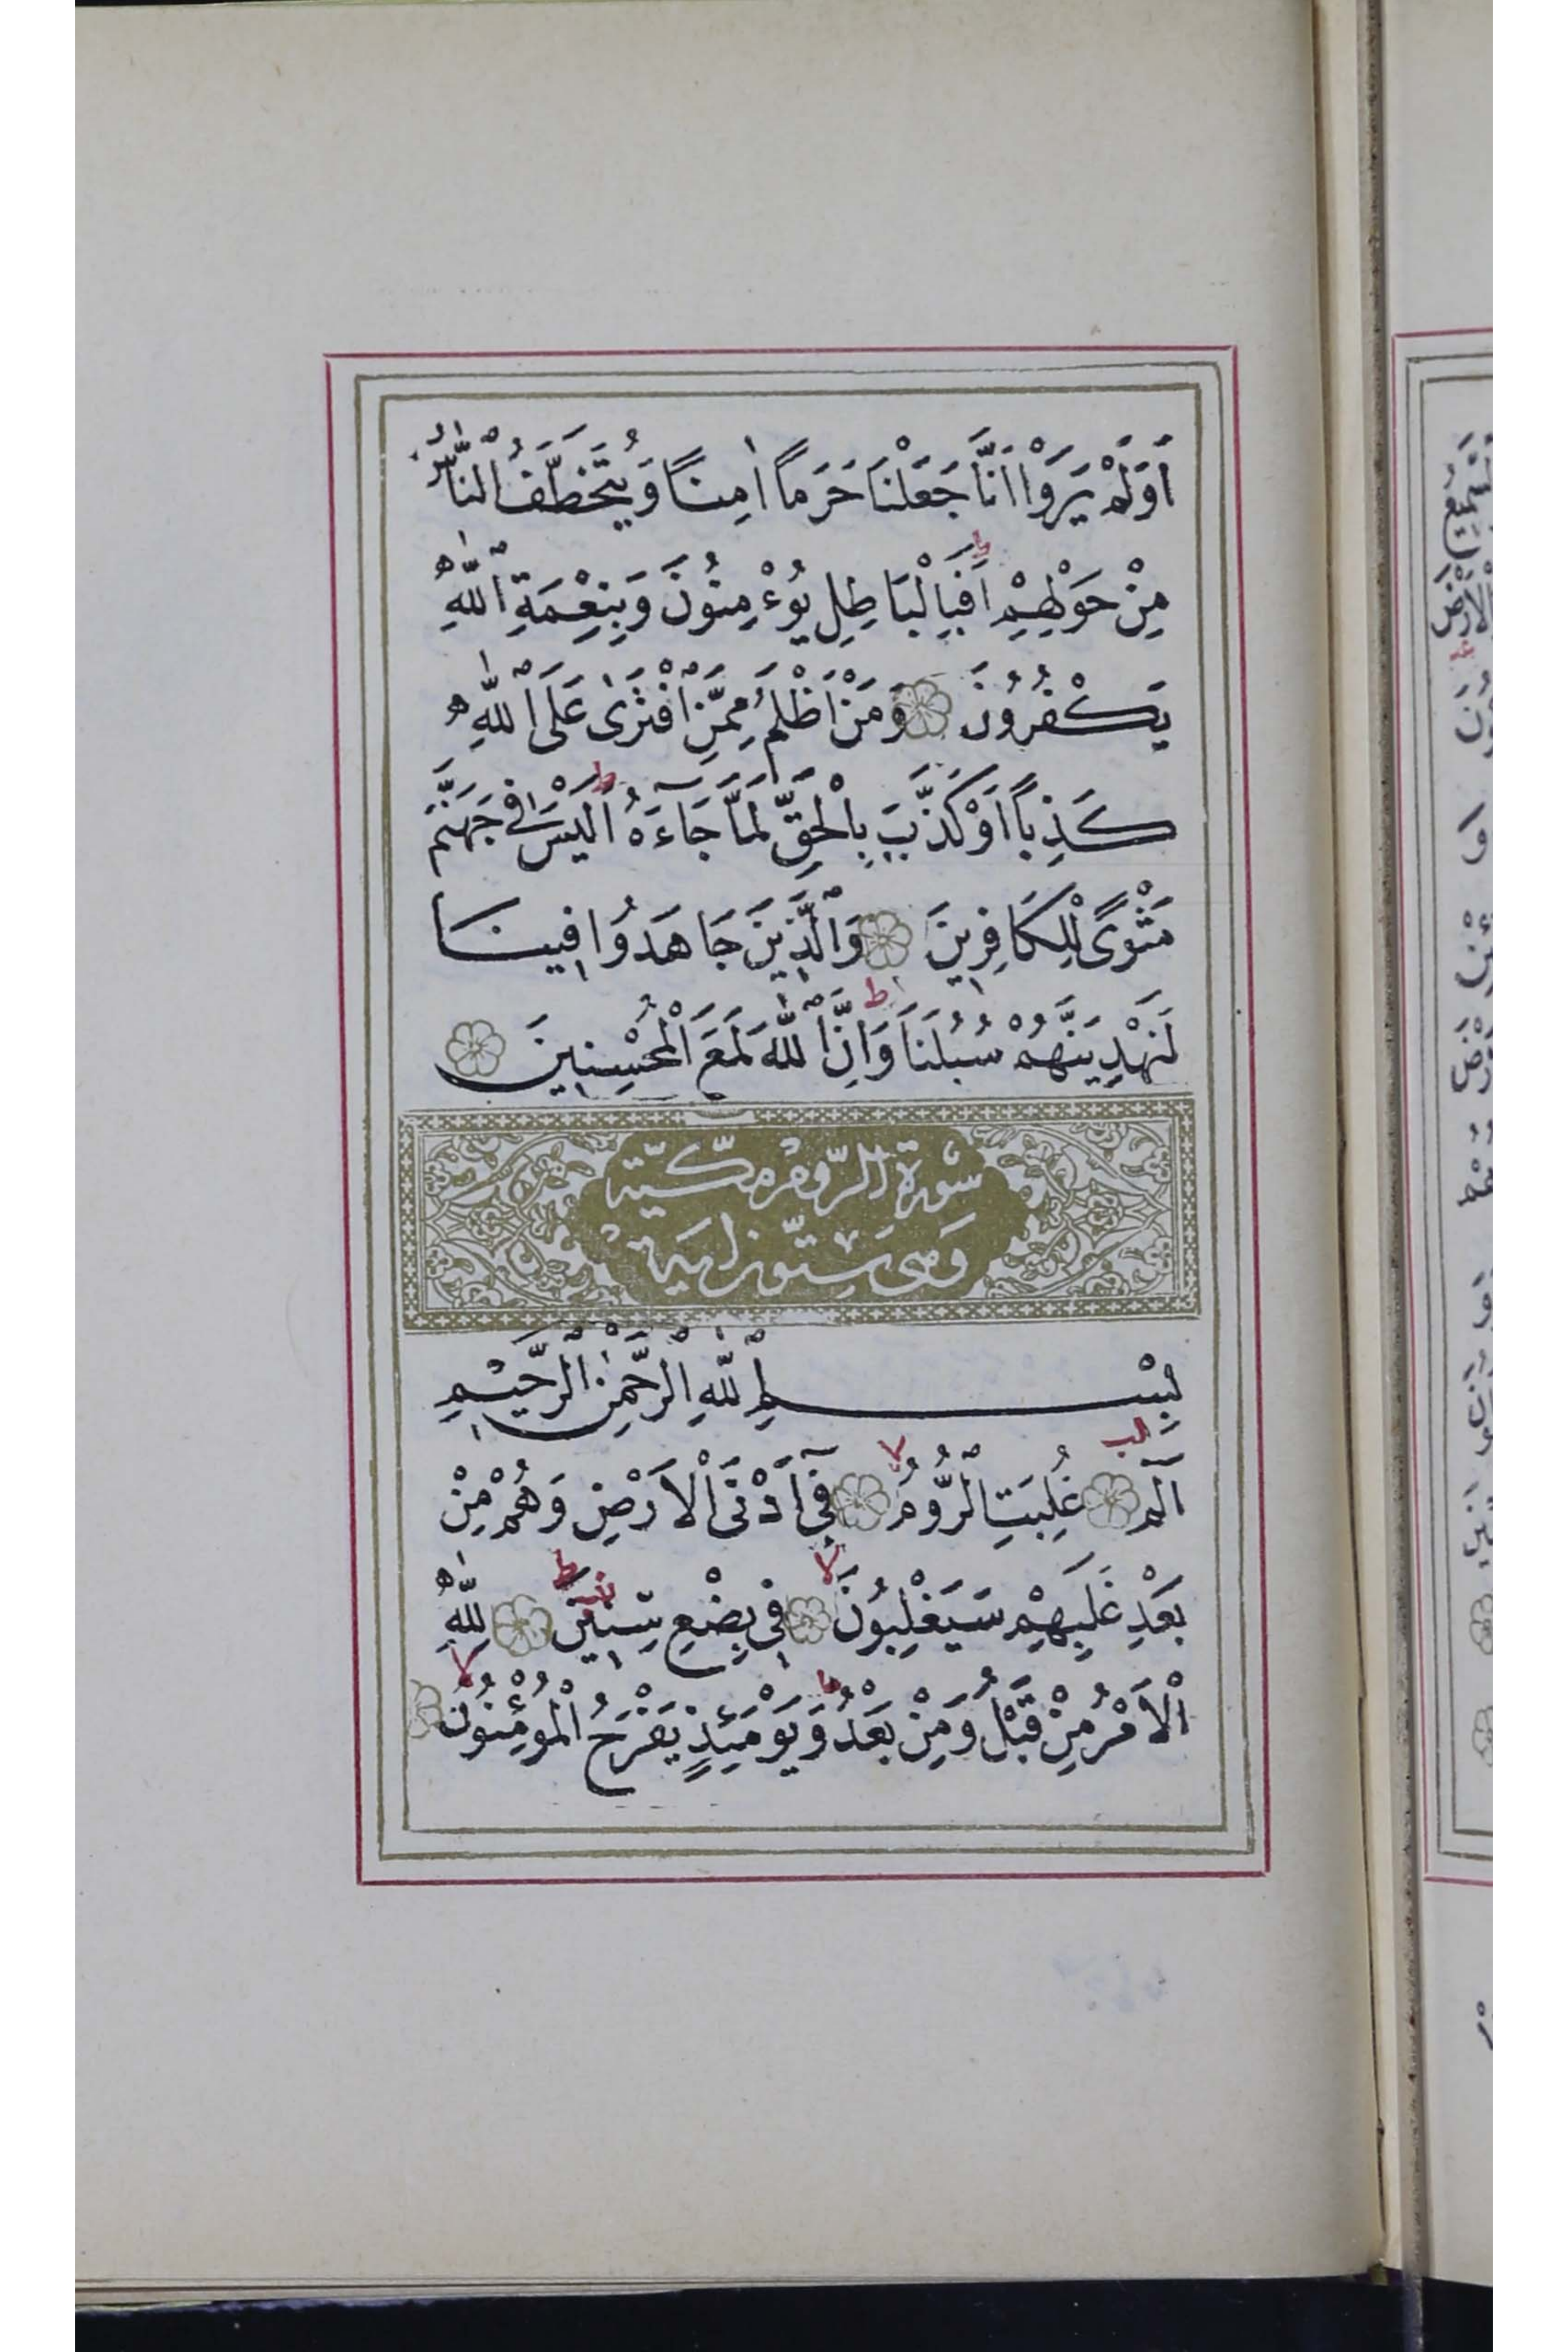 اَوَلَمْ يَرَوْا اَنَّا جَعَلْنَا حَرَماً اٰمِناً وَيُتَخَطَّفُ النَّاسُ
مِنْ حَوْلِهِمْ اَفَبِالْبَاطِلِ يُوءْمِنُونَ وَبِنِعْمَةِ اللّٰهِ
يَكْفُرُونَ وَمَنْ اَظْلَمُ مِمَّنِ افْتَرٰى عَلَى اللّٰهِ
كَذِباً اَوْ كَذَّبَ بِالْحَقِّ لَمَّا جَآءَهُ اَلَيْسَ فٖى جَهَنَّمَ
مَثْوًى لِلْكَافِرٖينَ وَالَّذٖينَ جَاهَدُوا فٖينَا
لَنَهْدِيَنَّهُمْ سُبُلَنَا وَاِنَّ اللّٰهَ لَمَعَ الْمُحْسِنٖينَ
سُورَةُ الرُّومِ مَكِّيَّة
وَهِىَ سِتُّونَ اٰيَة
بِسْمِ اللّٰهِ الرَّحْمٰنِ الرَّحٖيمِ
الٓمٓ غُلِبَتِ الرُّومُ فٖٓى اَدْنَى الْاَرْضِ وَهُمْ مِنْ
بَعْدِ غَلَبِهِمْ سَيَغْلِبُونَ فٖى بِضْعِ سِنٖينَ لِلّٰهِ
الْاَمْرُ مِنْ قَبْلُ وَمِنْ بَعْدُ وَيَوْمَئِذٍ يَفْرَحُ الْمُؤْمِنُونَ